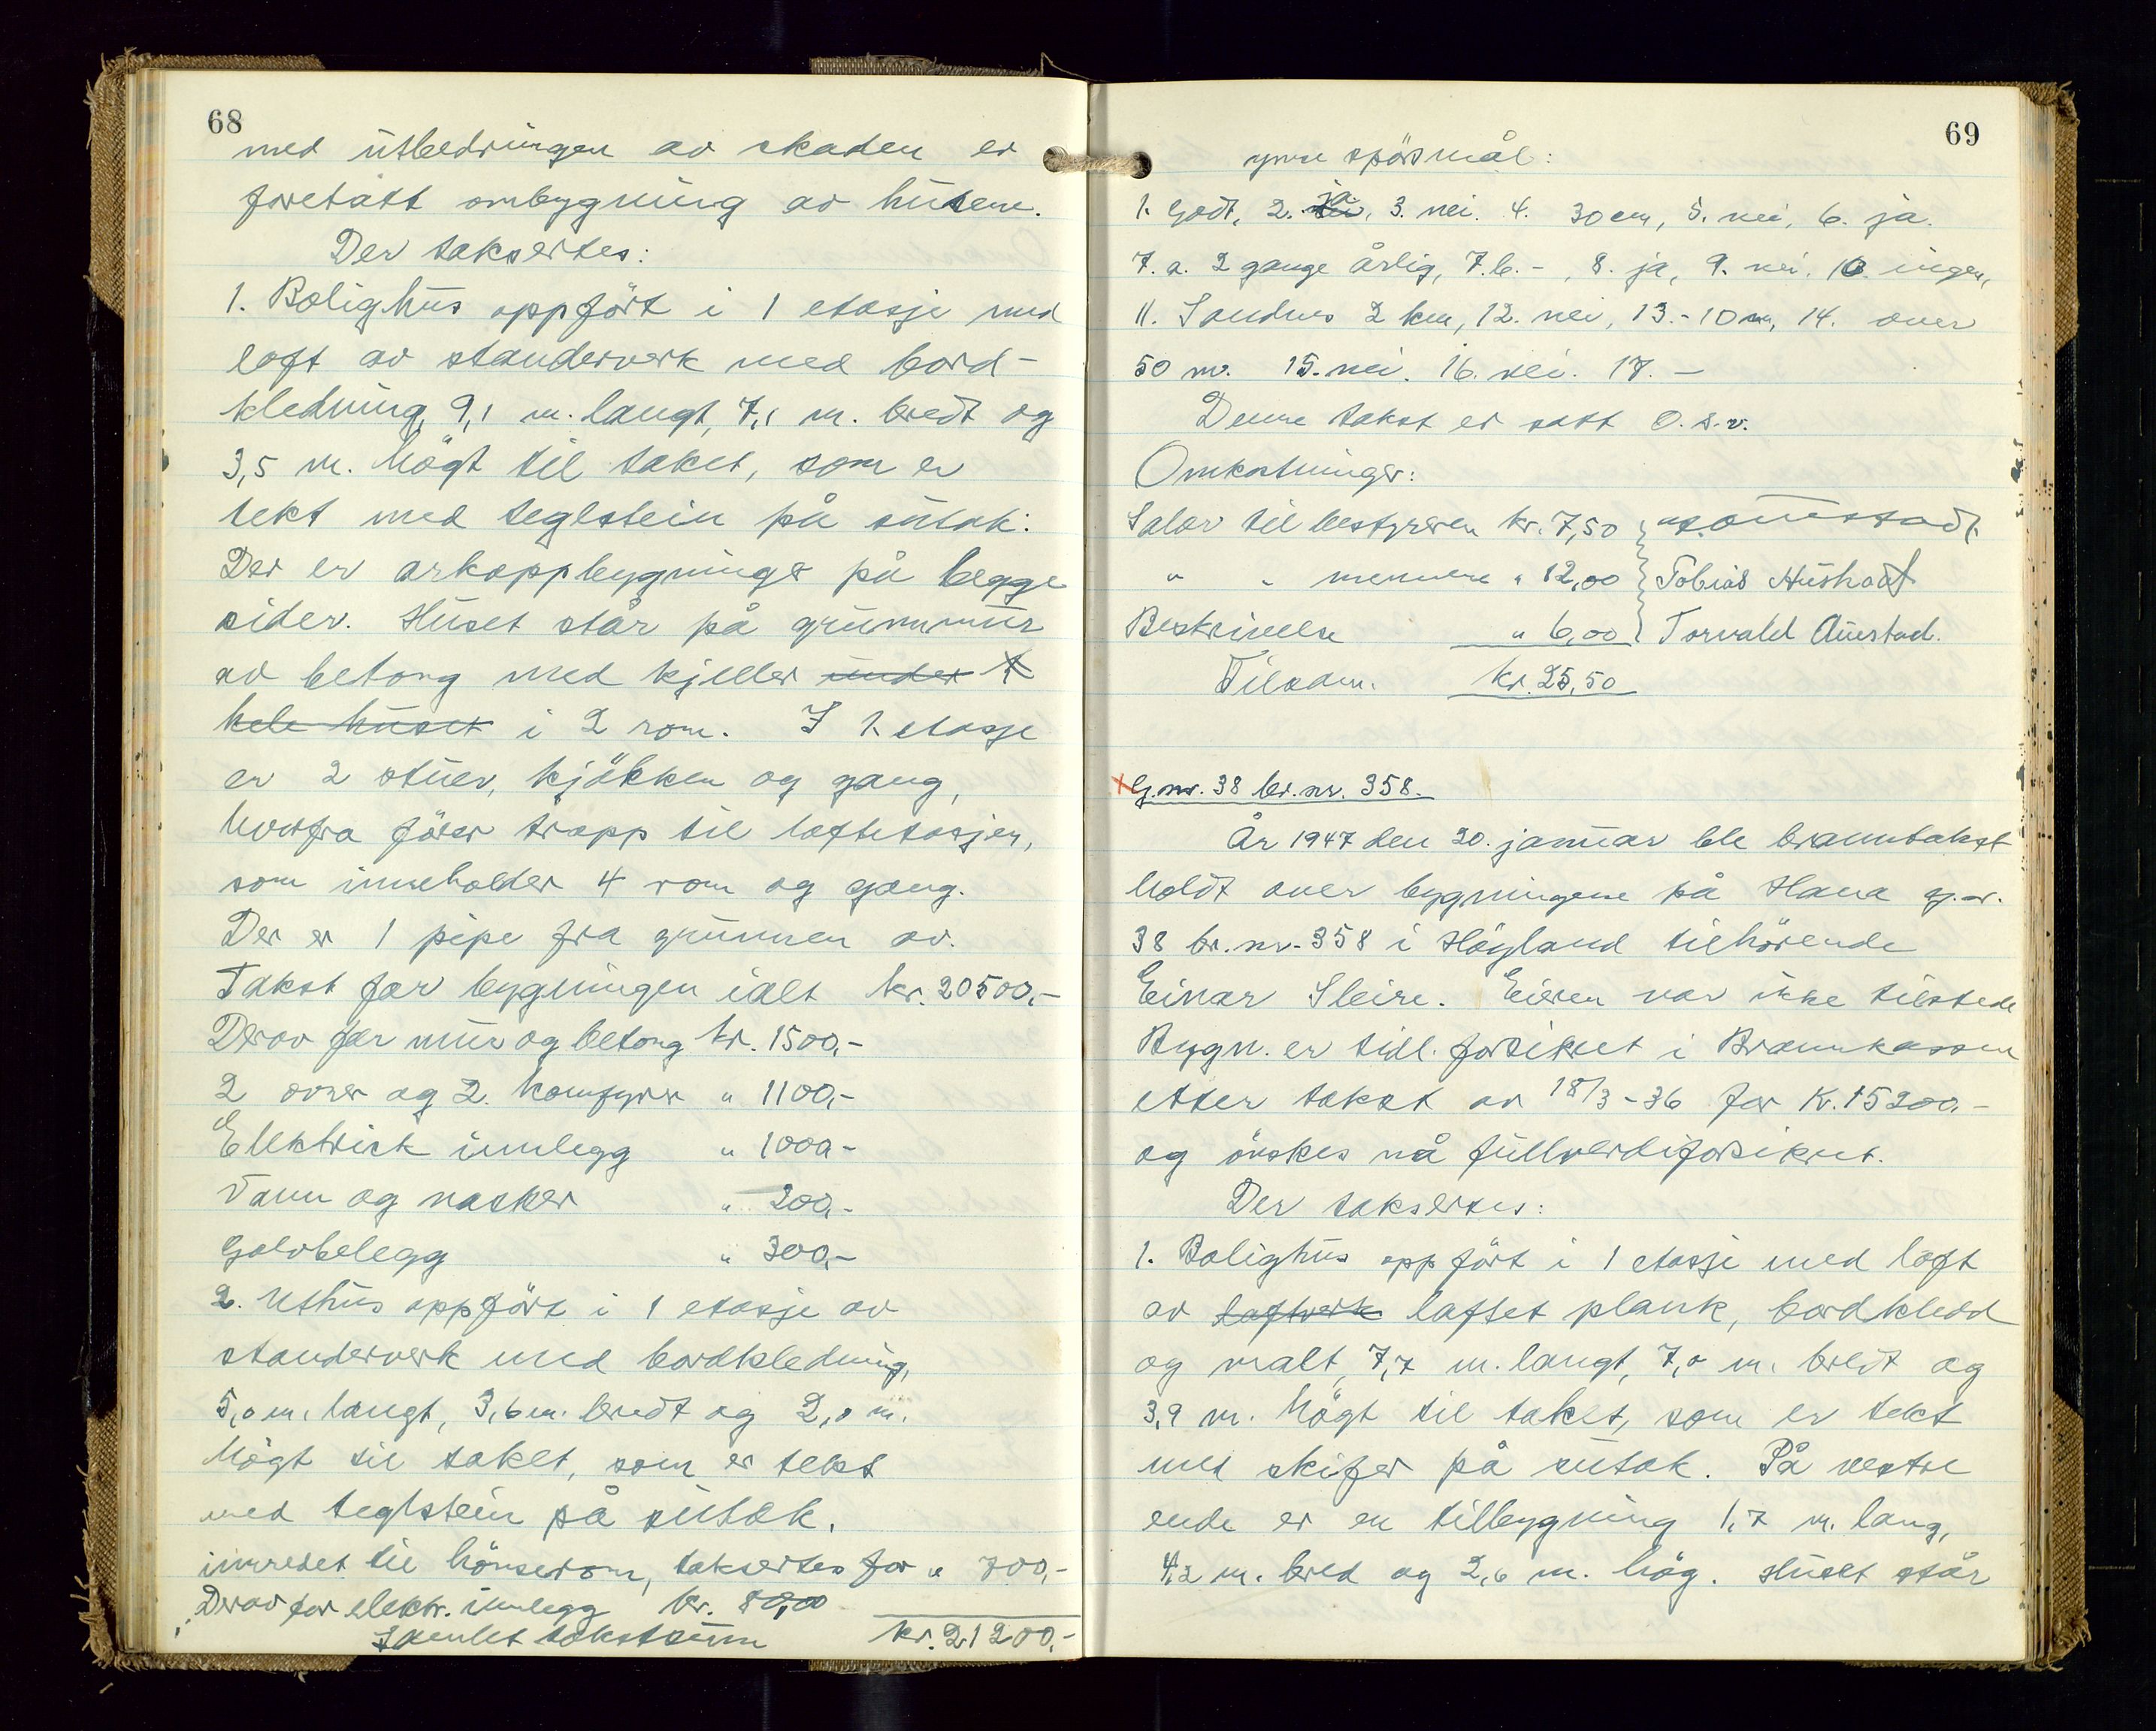 68
med utbedringen av skaden er
foretatt ombygning av husene.
Der taksertes:
1. Bolighus oppført i 1 etasje med
loft av standerverk med bord-
kledning, 9,1 m. langt, 7,1 m. bredt og
3,5 m. högt til taket, som er
tekt med teglstein på sutak.
Der er arkoppbygninger på begge
sider. Huset står på grunnmur
av betong med kjeller under
hele huset i 2 rom. I 1. etasje
er 2 stuer, kjökken og gang,
hvorfra förer trapp til loftetasjen,
som inneholder 4 rom og gang.
Der er 1 pipe fra grunnen av.
Takst for bygningen ialt kr. 20500,-
Derav for mur og betong kr. 1500,-
2 ovner og 2 komfyrer " 1100,-
Elektrisk innlegg " 1000,-
Vann og vasker " 200,-
Golvbelegg " 300,-
2. Uthus oppfört i 1 etasje av
standerverk med bordkledning,
5,0 m. langt, 3,6 m. bredt og 2,0 m.
högt til taket, som er tekt
med teglstein på sutak,
innredet til hönserom, taksertes for " 700,-
Derav for elektr. innlegg kr. 80,00
Samlet takstsum kr. 21200,-
69
ymse spörsmål:
1. Godt, 2. ja, 3. nei. 4. 30 cm, 5. nei, 6. ja.
7.a. 2 gange årlig, 7.b. -, 8. ja, 9. nei, 10. ingen,
11. Sandnes 2 km, 12. nei, 13. - 10 m, 14. over
50 m. 15. nei. 16. nei. 17. -
Denne takst er satt o.s.v.
Omkostninger:
Salær til bestyreren kr. 7,50
" " mennene " 12,00 Tobias Husstad
Beskrivelse " 6,00 Torvald Austad.
Tilsam. kr. 25,50
G.nr. 38 br.nr. 358.
År 1947 den 20. januar ble branntakst
holdt over bygningene på Hana g.nr.
38 br.nr. 358 i Höyland tilhörende
Einar Sleire. Eieren var ikke tilstede
Bygn. er tidl. forsikret i Brannkassen
etter takst av 18/3-36 for kr. 15200,-
og önskes nå fullverdiforsikret.
Der taksertes:
1. Bolighus oppfört i 1 etasje med loft
av loftverk laftet plank, bordkledd
og malt, 7,7 m. langt, 7,0 m. bredt og
3,9 m. högt til taket, som er tekt
med skifer på sutak. På vestre
ende er en tilbygning 1,7 m. lang,
4,2 m. bred og 2,6 m. hög. Huset står